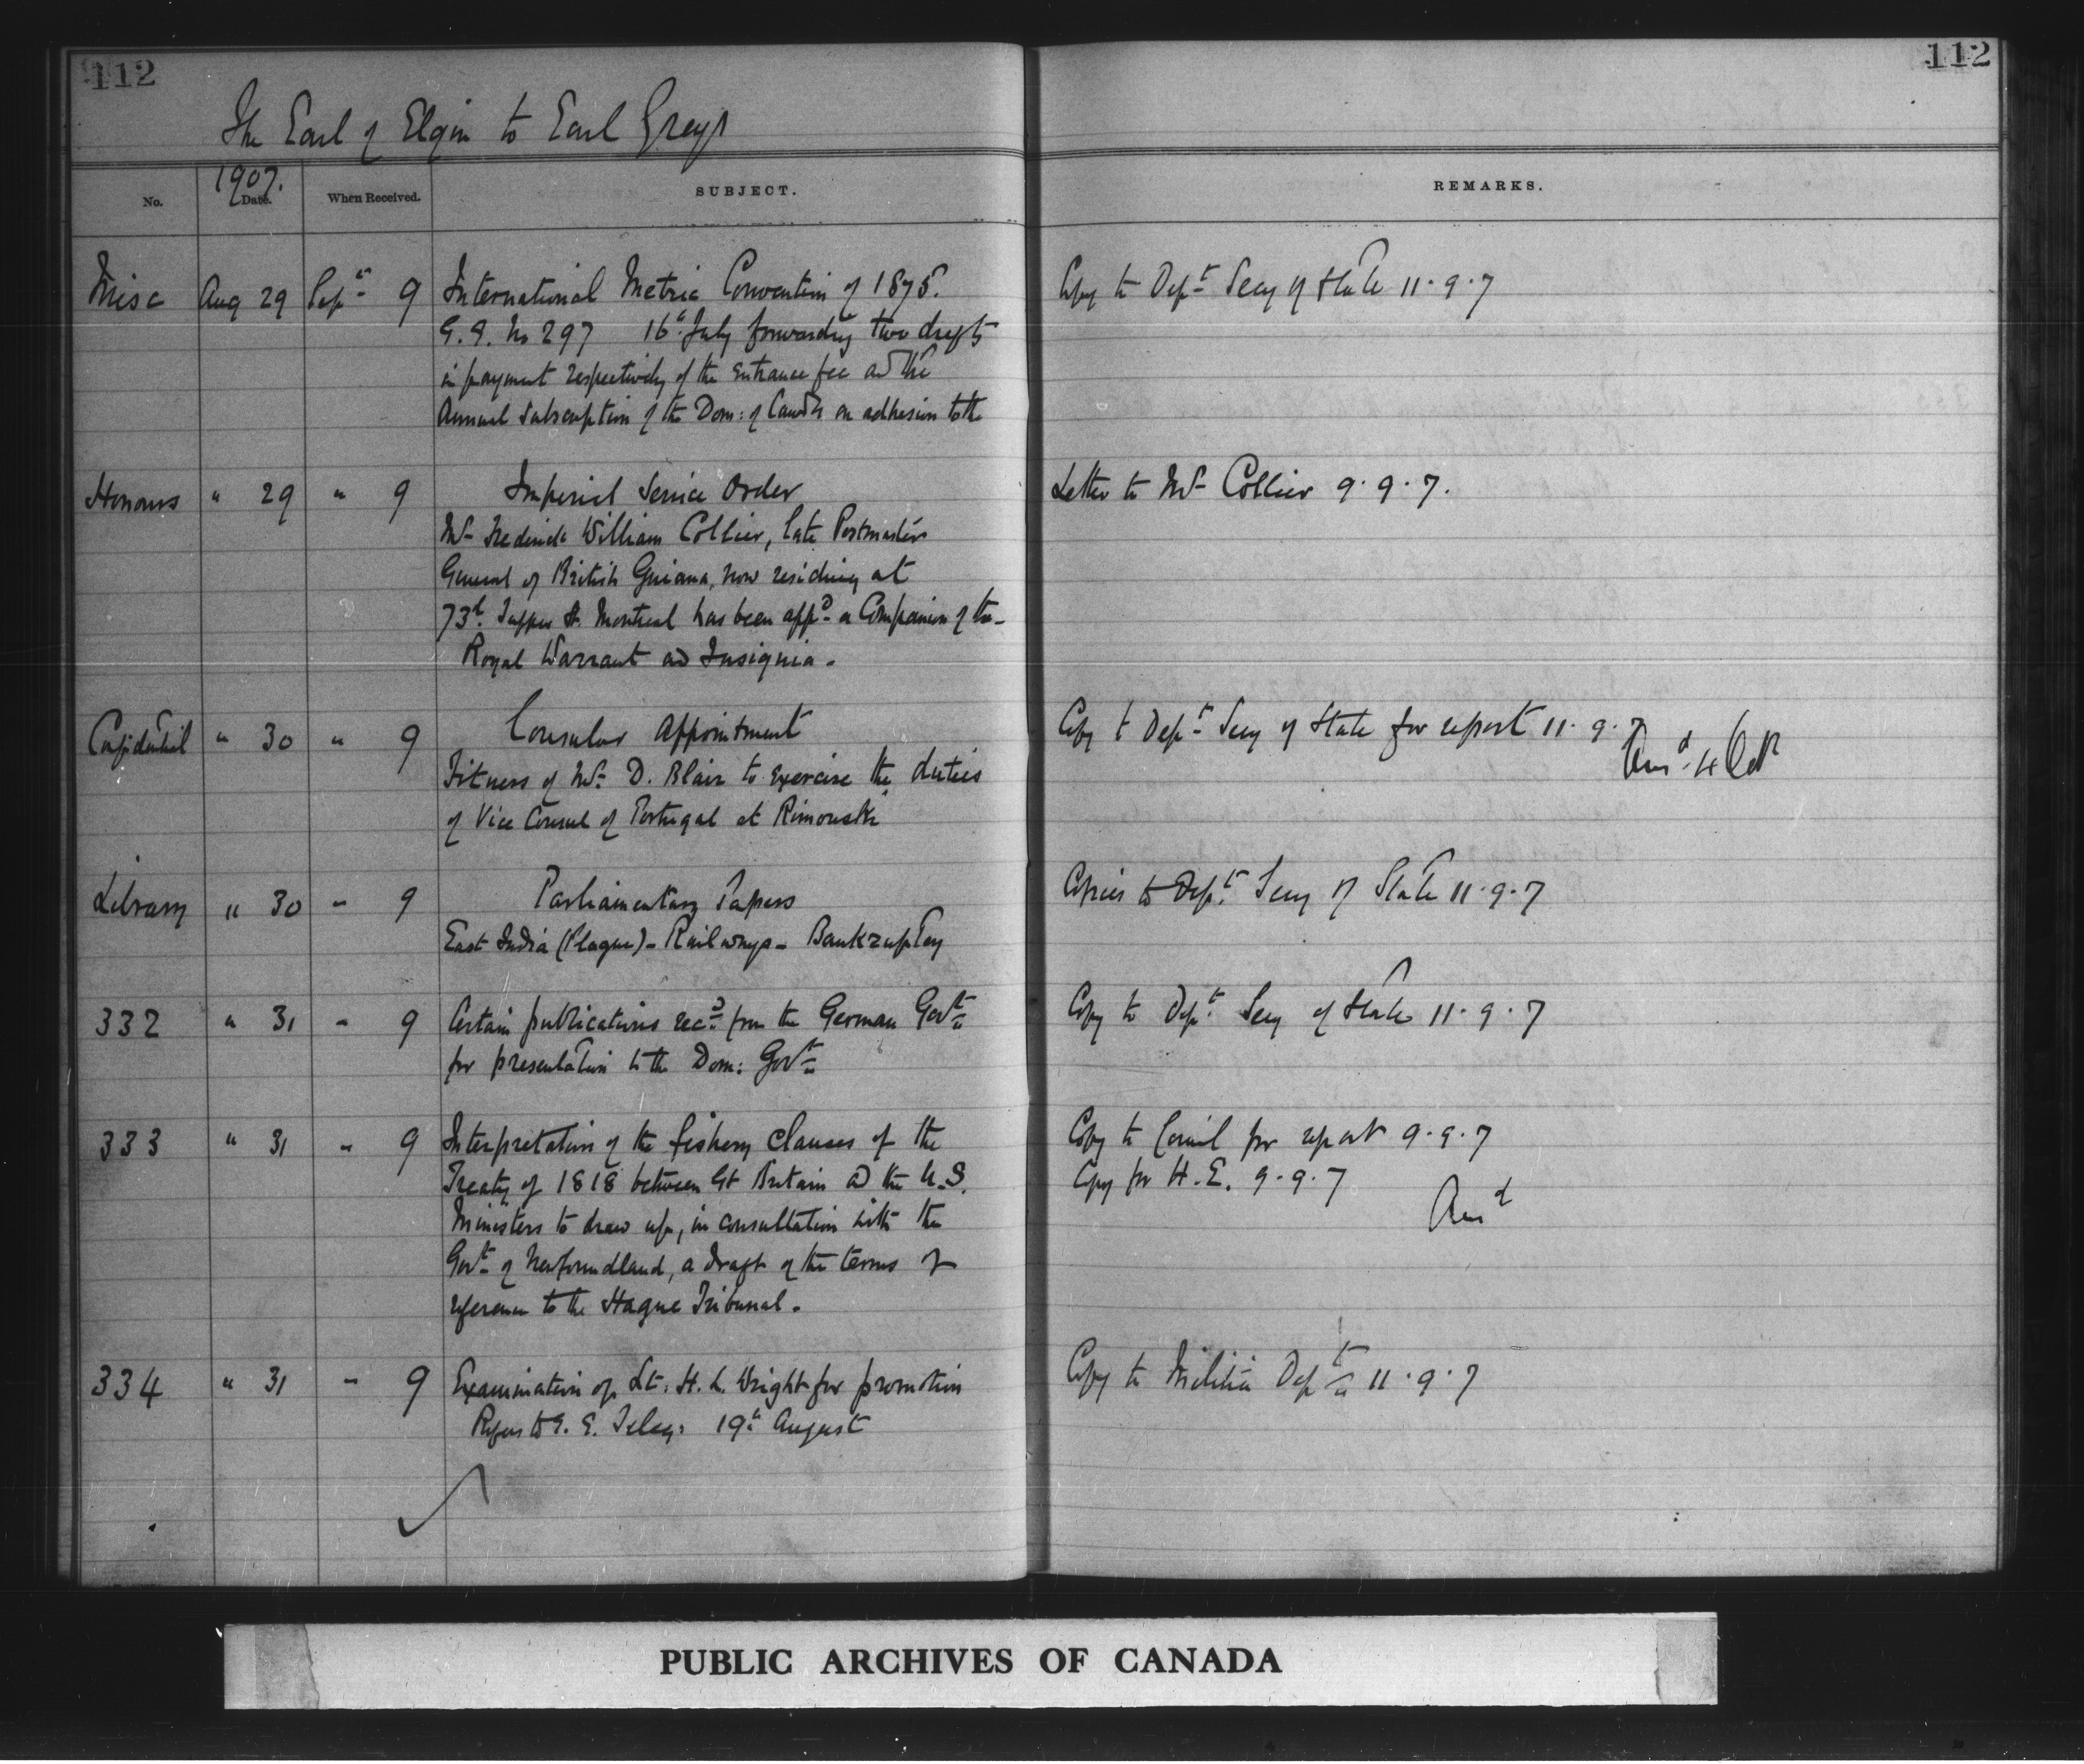 112
112
The Earl of Elgin to Earl Grey
1907.
No. Date. When Received. SUBJECT. REMARKS.
Misc Aug 29 Sept 9 International Metric Convention of 1875. Copy to Dept Secy of State 11.9.7
G.G. No 297 16th July forwarding two drafts
in payment respectively of the entrance fee and the
Annual Subscription of the Dom: of Canada on adhesion to the
Honours " 29 " 9 Imperial Service Order Letter to Mr Collier 9.9.7.
Mr Frederick William Collier, late Postmaster
General of British Guiana, now residing at
73d. Tupper St. Montreal has been appd a Companion of the
Royal Warrant and Insignia.
Confidential " 30 " 9 Consular Appointment Copy to Dept Secy of State for report 11.9.7
Ansd. 4 Oct
Fitness of Mr. D. Blair to exercise the duties
of Vice Consul of Portugal at Rimouski
Library " 30 " 9 Parliamentary Papers Copies to Dept. Secy of State 11.9.7
East India (Plague) - Railways - Bankruptcy
332 " 31 " 9 Certain publications recd from the German Govt Copy to Dept. Secy of State 11.9.7
for presentation to the Dom: Govt
333 " 31 " 9 Interpretation of the fishery clauses of the Copy to Council for report 9.9.7
Treaty of 1818 between Gt Britain and the U.S. Copy for H.E. 9.9.7
Ansd
Ministers to draw up, in consultation with the
Govt of Newfoundland, a draft of the terms of
reference to the Hague Tribunal.
334 " 31 " 9 Examination of Lt. H. L. Wright for promotion Copy to Militia Dept 11.9.7
Refers to G. G. Teleg: 19th August
PUBLIC ARCHIVES OF CANADA